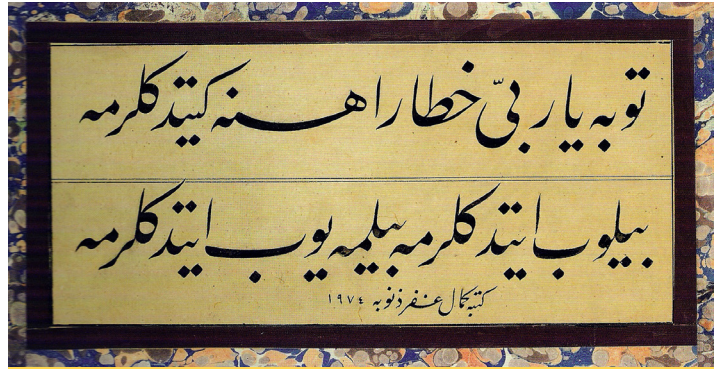 توبه یا ربی خطا راهنه کیتدکلرمه
بیلوب ایتدکلرمه بیلمه یوب ایتدکلرمه
کتبه کمال غفر ذنوبه ١٩٧٤